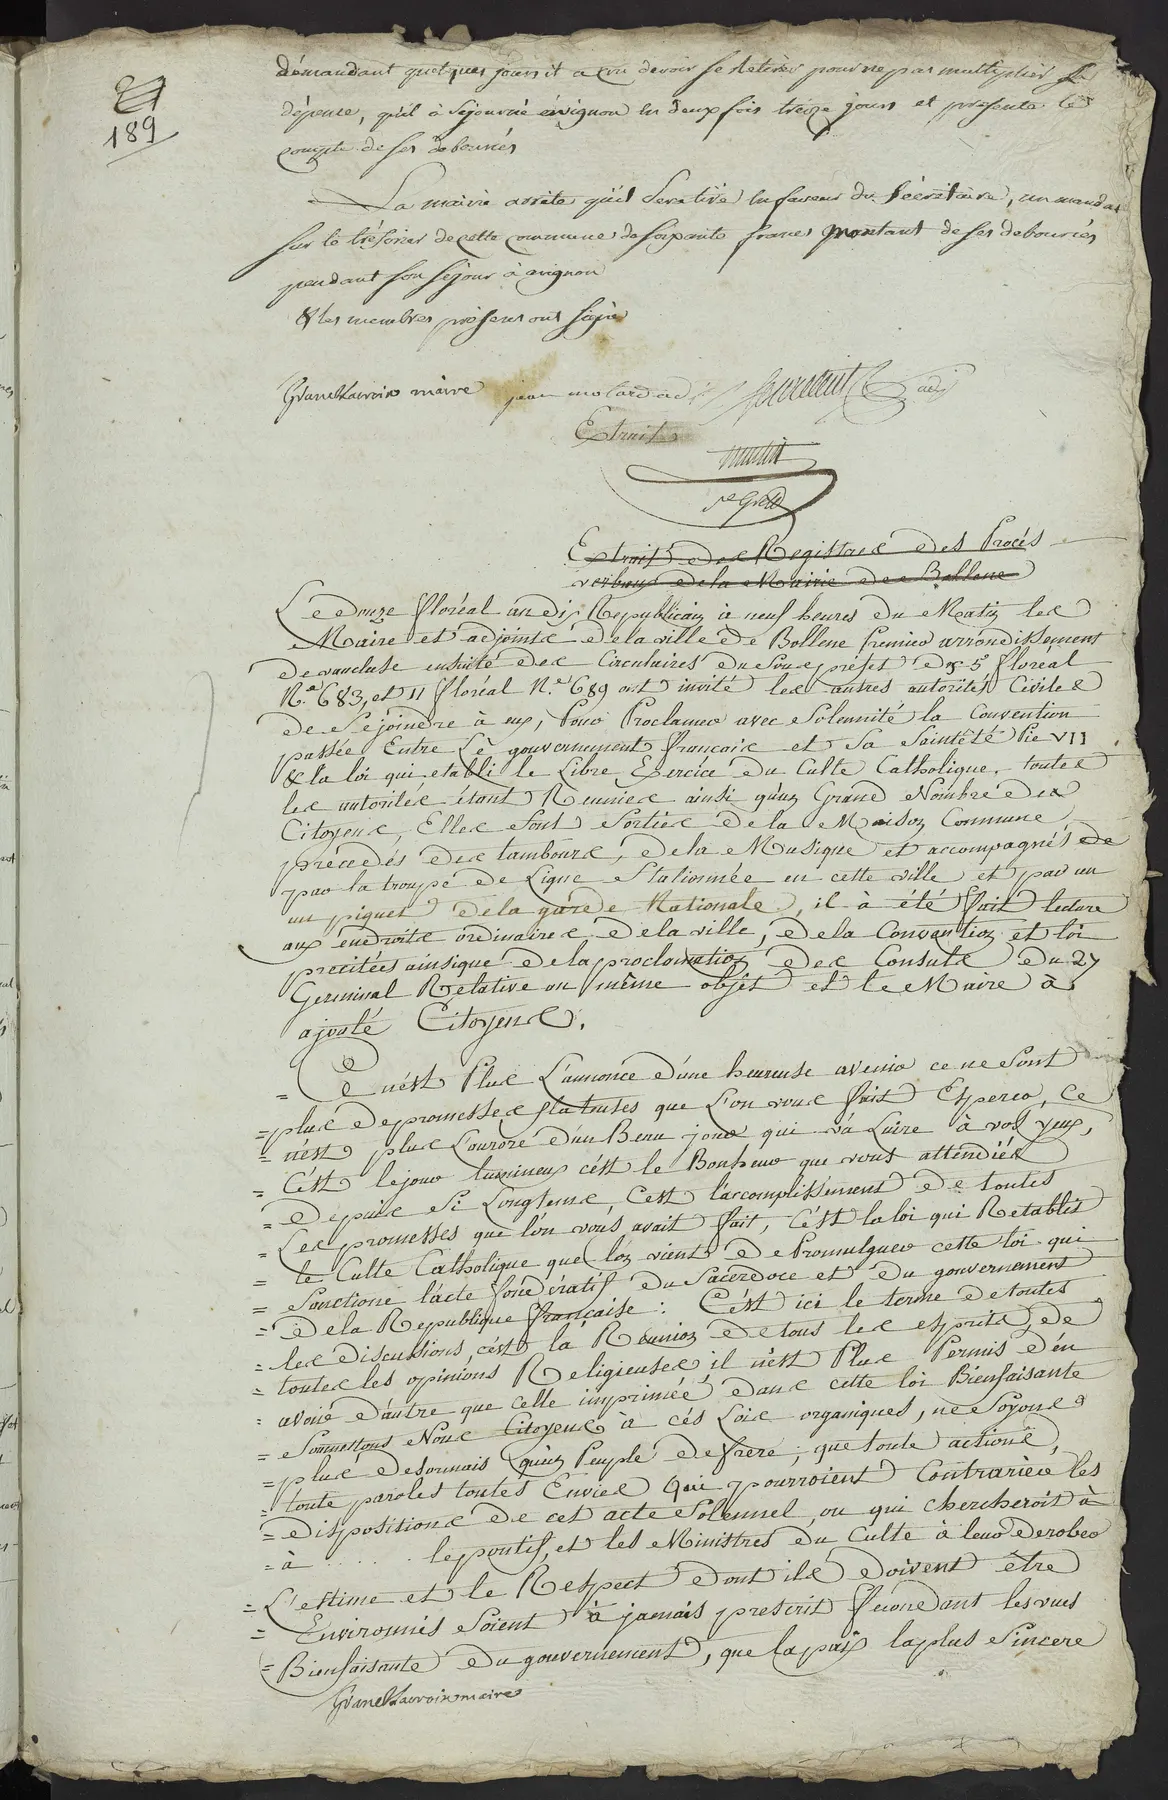 189
demandant quelques jours il a cru devoir se Retirer pour ne pas multiplier la
dépense, qu'il à séjourné avignon en deux fois treize jours et présente le
compte de ses debourcés
La mairie arrête qu'il sera tiré en faveur du secrétaire, un mandat
sur le trésorier de cette commune de soixante francs montant de ses debourcés
pendant son séjour à avignon
& les membres présens ont signé
Granet Lacroix maire jean molard adj
Extrait
Extrait des Registres des Procés
verbaux de la Mairie de Bollene
Le douze floréal an dix Républicain à neuf heures du Matin les
Maire et adjoints de la ville de Bollene Premier arrondissement
de vaucluse ensuite des Circulaires du Sous préfet des 5 floréal
N.º 683, et 11 floréal N.º 689 ont invité les autres autorités Civiles
de Se joindre à eux, Pour Proclamer avec Solemnité la Convention
passée Entre Le gouvernement français et Sa Sainteté Pie VII
& la loi qui etabli le Libre Exercice du Culte Catholique. toutes
les autorités étant Reunies ainsi qu'un Grand Nombre de
Citoyens, Elles Sont Sorties de la Maison Commune,
précedés des tambours, de la Musique et accompagnés de
par la troupe de Ligne Stationnée en cette ville et par un
un piquet de la garde Nationale, il à été fait lecture
aux endroits ordinaires de la ville, de la Convention et loi
precitées ainsi que de la proclamation des Consuls du 27
Germinal Relative au même objet et le Maire à
ajouté Citoyens.
= Ce n'est Plus L'annonce d'une heureuse avenir ce ne Sont
= plus de promesses flateuses que L'on vous fait Esperer, Ce
= n'est plus L'aurore d'un Beau jour qui va Luire à vos yeux,
= C'est le jour lumineux c'ést le Bonheur que vous attendiés
= depuis Si Longtems, C'est l'accomplissement de toutes
= Les promesses que l'on vous avait fait, C'ést la loi qui Retablit
= le Culte Catholique que l'on vient de Promulguer cette loi qui
= Sanctione l'acte féderatif du Sacerdoce et du gouvernement
= de la Republique française : C'ést ici le terme de toutes
= les discussions, c'ést la Reunion de tous les esprits, de
= toutes les opinions Religieuses il n'ést Plus Permis d'en
= avoir d'autre que celle imprimée dans cette loi Bienfaisante
= Soumettons Nous Citoyens à cés Lois organiques, ne Soyons
= plus desormais qu'un Peuple de frere, que toute actions,
= toute paroles toutes Envies Qui pourroient Contrarier les
= dispositions de cet acte Solennel, ou qui chercheroit à
= à ...... le pontif, et les Ministres du Culte à leur derober
= L'estime et le Respect dont ils doivent être
= Environnés Soient à jamais prescrit Secondant les vues
= Bienfaisante du gouvernement, que la paix la plus Sincere
Granet Lacroix maire